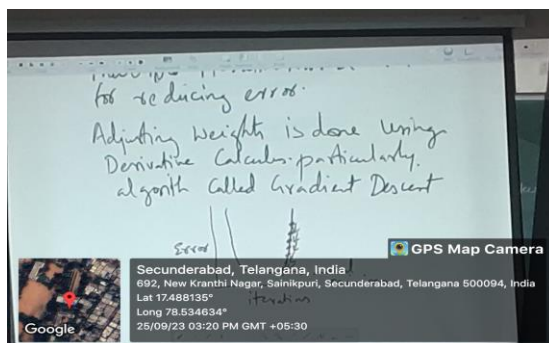 for reducing error.
Adjusting Weights is done using
Derivative Calculus. particularly.
algorith Called Gradient Descent
Error
iteration
GPS Map Camera
Secunderabad, Telangana, India
692, New Kranthi Nagar, Sainikpuri, Secunderabad, Telangana 500094, India
Lat 17.488135°
Long 78.534634°
25/09/23 03:20 PM GMT +05:30
Google